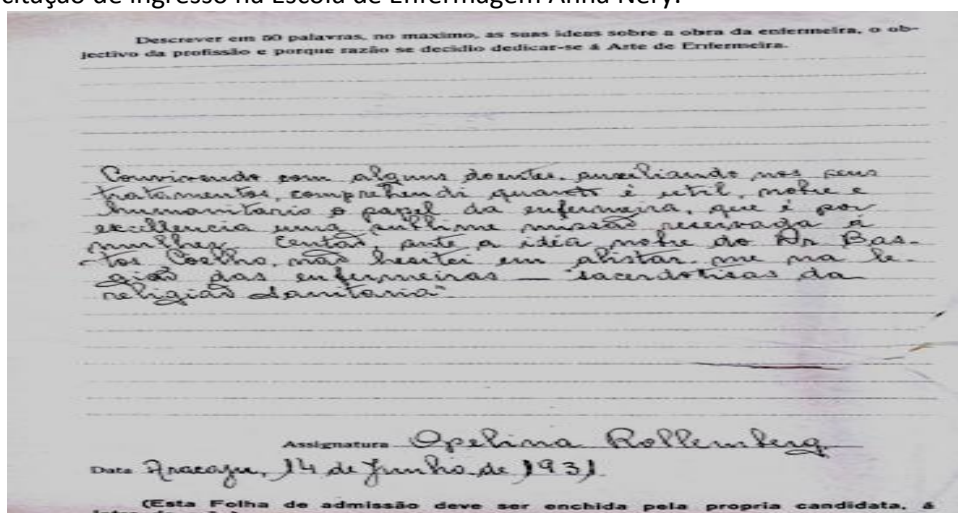 citação de ingresso na Escola de Enfermagem Anna Nery.
Descrever em 50 palavras, no maximo, as suas ideas sobre a obra da enfermeira, o ob-
jectivo da profissão e porque razão se decidio dedicar-se á Arte de Enfermeira.
Convivendo com alguns doentes, auxeliando nos seus
tratamentos, comprehendi quanto é util, nobre e
humanitario o papel da enfermeira, que é por
excellencia uma sublime missão reservada á
mulher. Então, ante a idéa nobre do Dr Bas-
tos Coelho, não hesitei em alistar-me na le-
gião das enfermeiras — "sacerdotisas da
religião sanitaria".
Assignatura Opelina Rollemberg
Data Aracaju, 14 de Junho de 1931
(Esta Folha de admissão deve ser enchida pela propria candidata, á